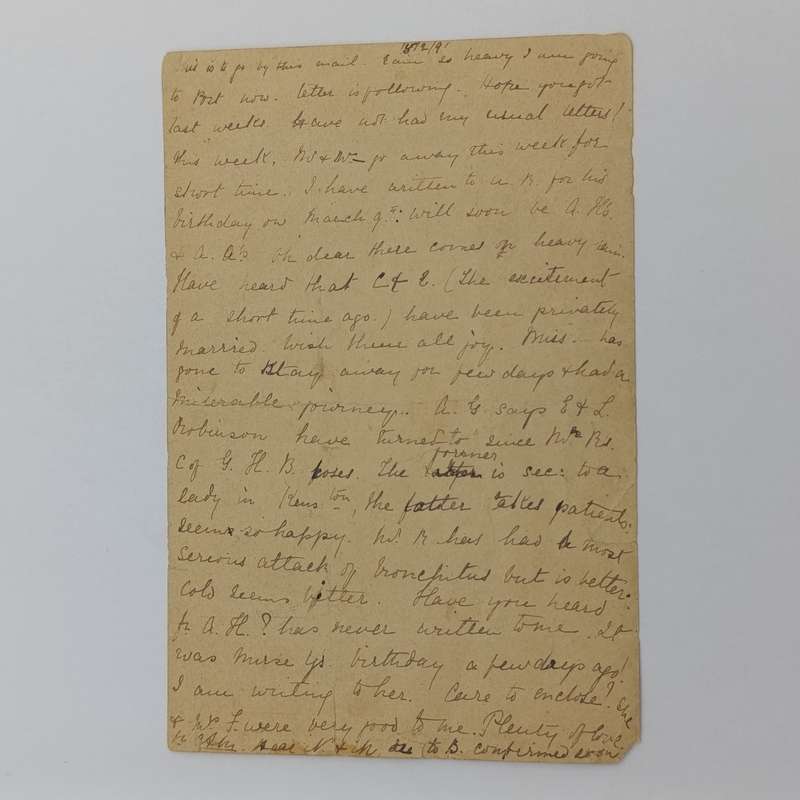 is to go by this mail. so heavy I am going
to Post now. letter is following. Hope you got
last weeks. Have not had my usual letters!
this week. M & Mrs go away this week for
short time. I have written to B. for his
birthday on March 9th: will soon be A. H's
& A. A's oh dear there comes heavy rain.
Have heard that C & E. (the excitement
of a short time ago.) have been privately
married. wish them all joy. Miss. has
gone to stay away for few days & had a
miserable journey. A. G. says E & L.
Robinson have turned to since Mr Rs.
C of G. H. B. The former is sec: to a
lady in Kenston, the latter takes patients.
seems so happy. M. R. has had a most
serious attack of bronchitus but is better:
cold seems bitter. Have you heard
fr A. H.? has never written to me. It
was Nurse Ys. birthday a few days ago!
I am writing to her. Care to enclose? She
& F. were very good to me. Plenty of love
Hear N & M. (to B. confirmed soon